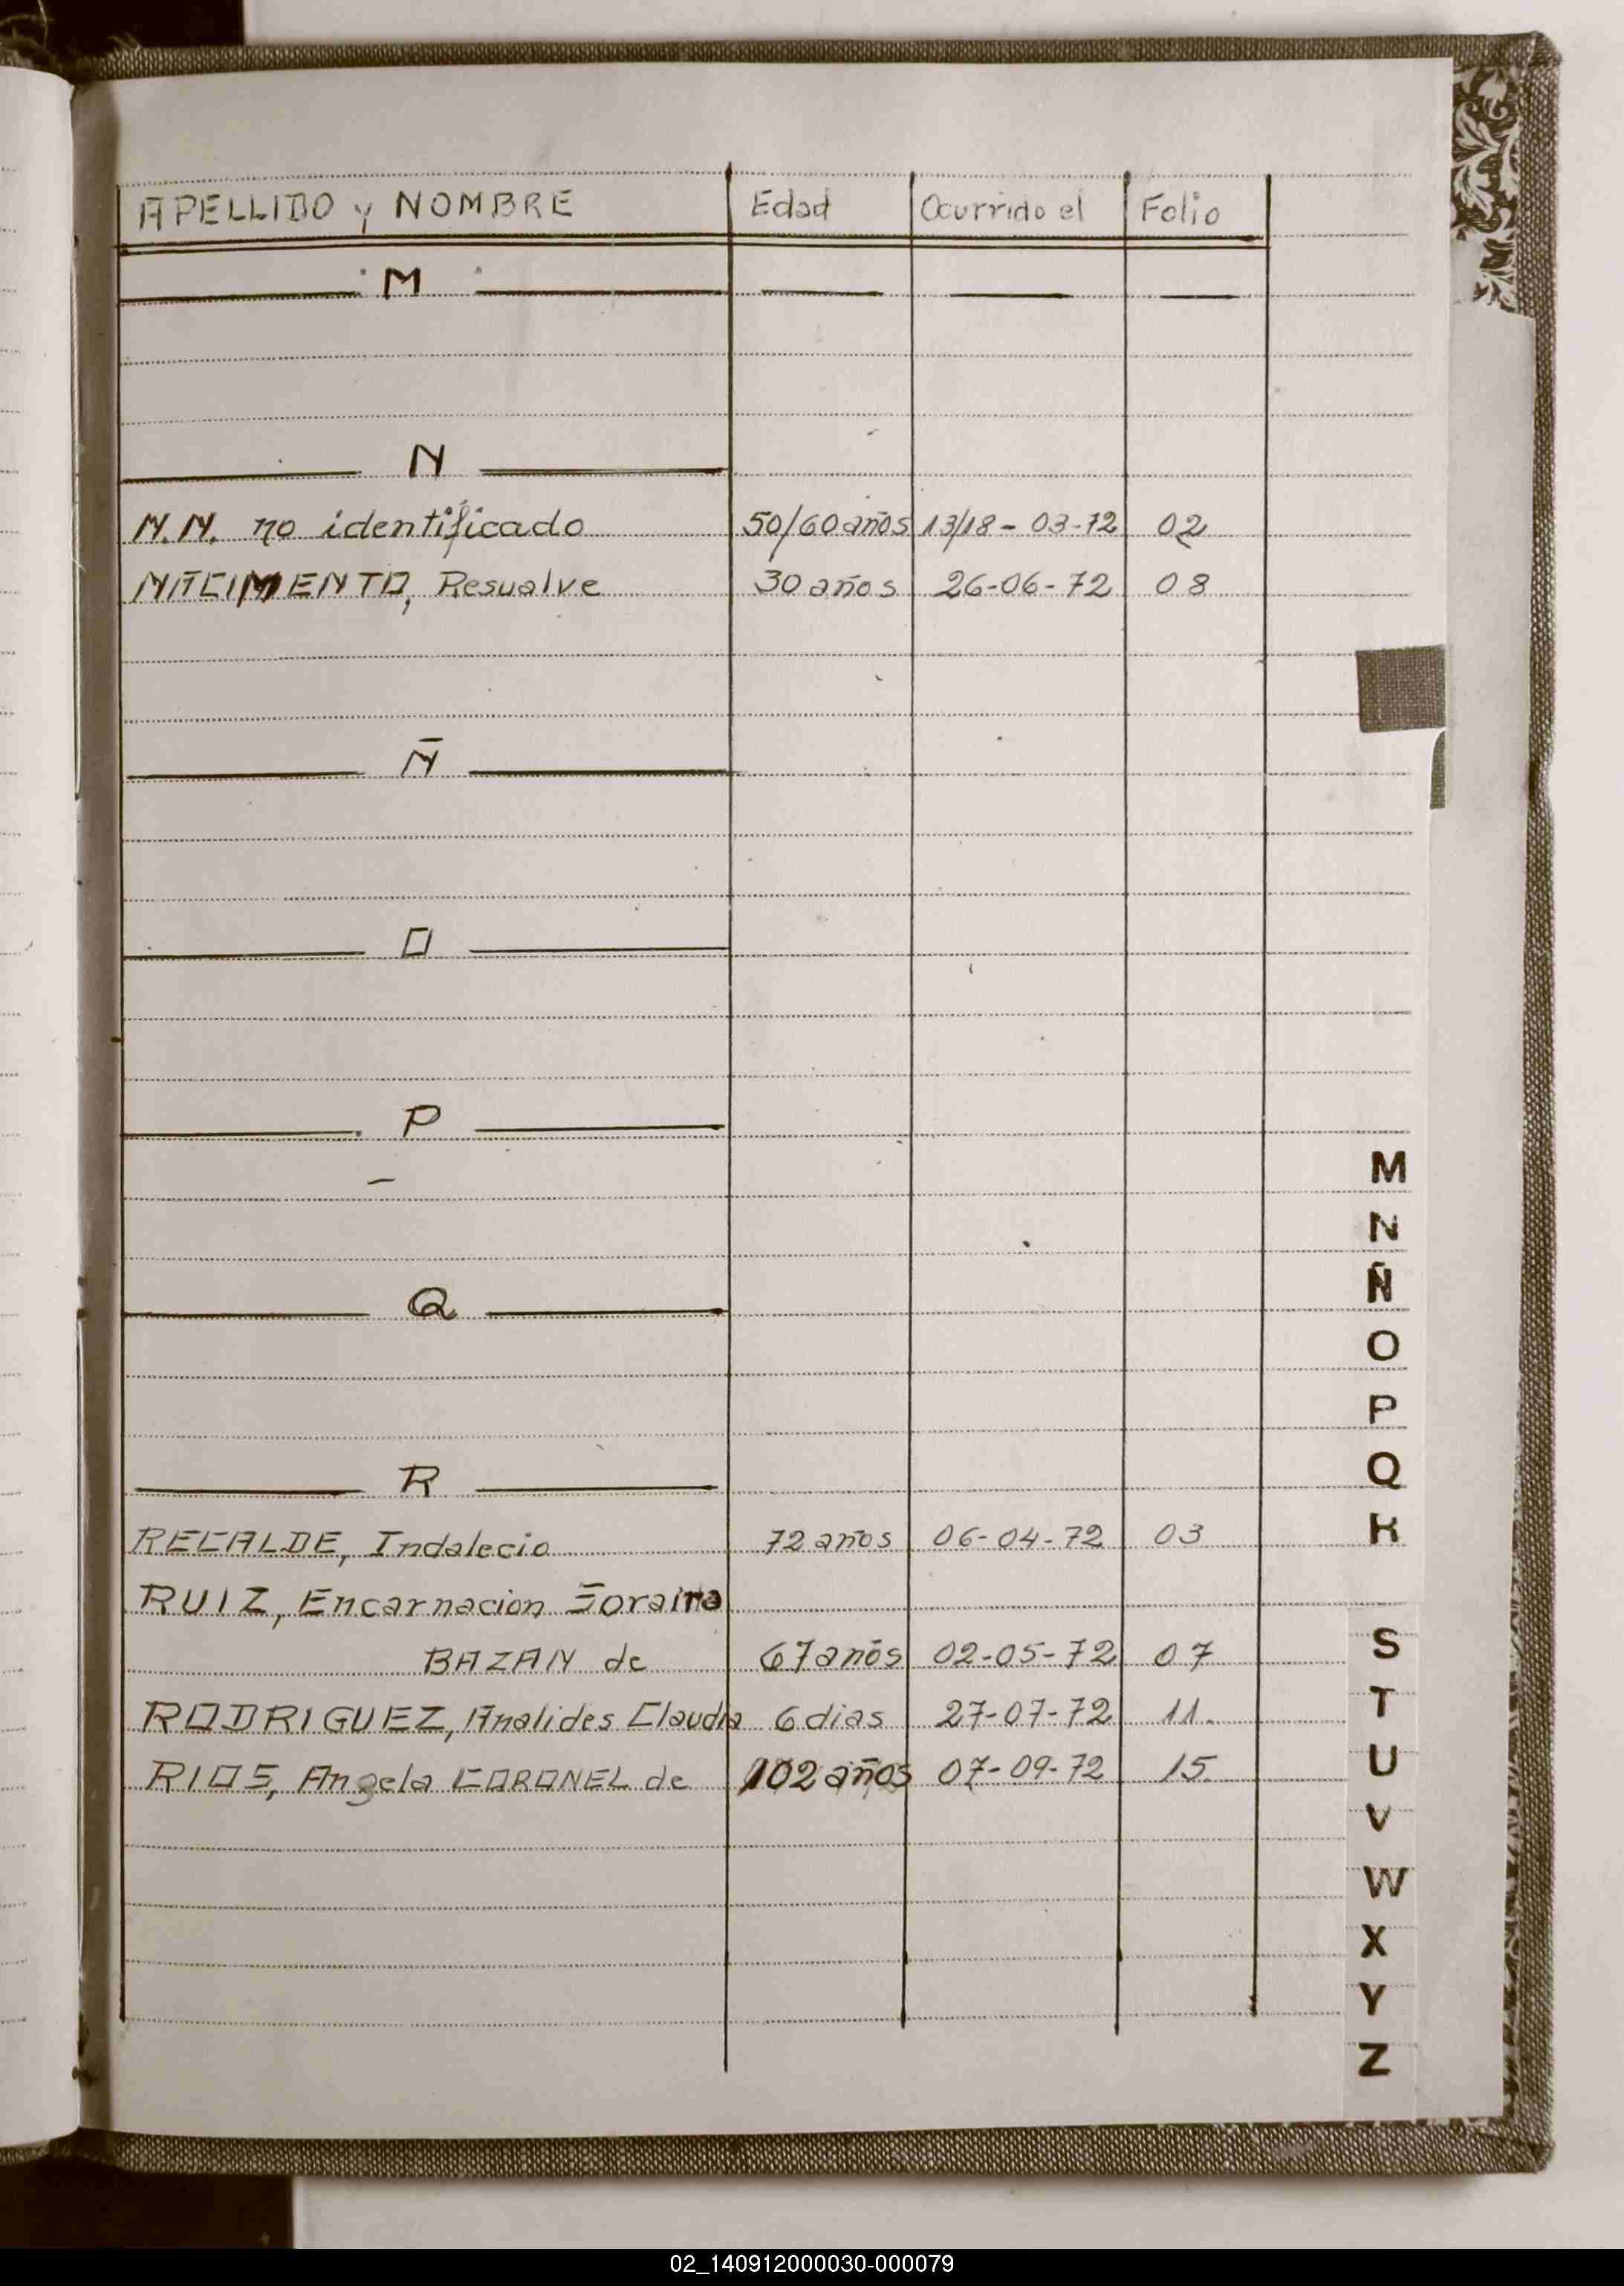 APELLIDO y NOMBRE Edad Ocurrido el Folio
M
N
N.N. no identificado 50/60 años 13/18-03-72 02
NACIMENTO, Resualve 30 años 26-06-72 08
Ñ
O
P
Q
R
RECALDE, Indalecio 72 años 06-04-72 03
RUIZ, Encarnacion
BAZAN de 67 años 02-05-72 07
RODRIGUEZ, Analides Claudia 6 dias 27-07-72 11.
RIOS, Angela CORONEL de 102 años 07-09-72 15.
M
N
Ñ
O
P
Q
R
S
T
U
V
W
X
Y
Z
02_140912000030-000079